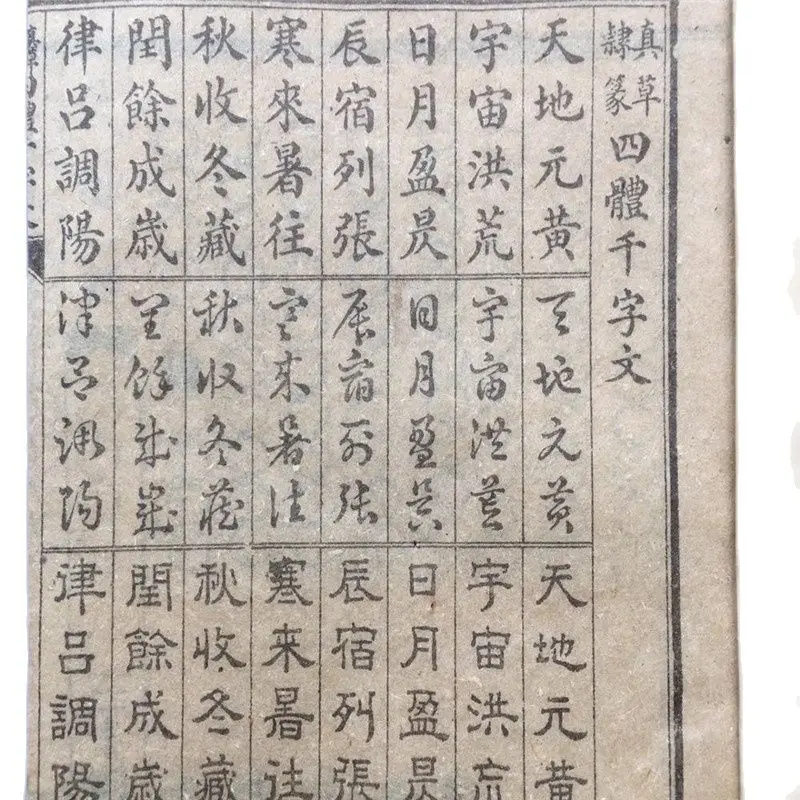 真草隸篆四體千字文
天地元黃
宇宙洪荒
日月盈昃
辰宿列張
寒來暑往
秋收冬藏
閏餘成歲
律呂調陽
天地玄黃
宇宙洪荒
日月盈昃
辰宿列張
寒來暑往
秋收冬藏
閏餘成歲
律呂調陽
天地元黃
宇宙洪荒
日月盈昃
辰宿列張
寒來暑往
秋收冬藏
閏餘成歲
律呂調陽